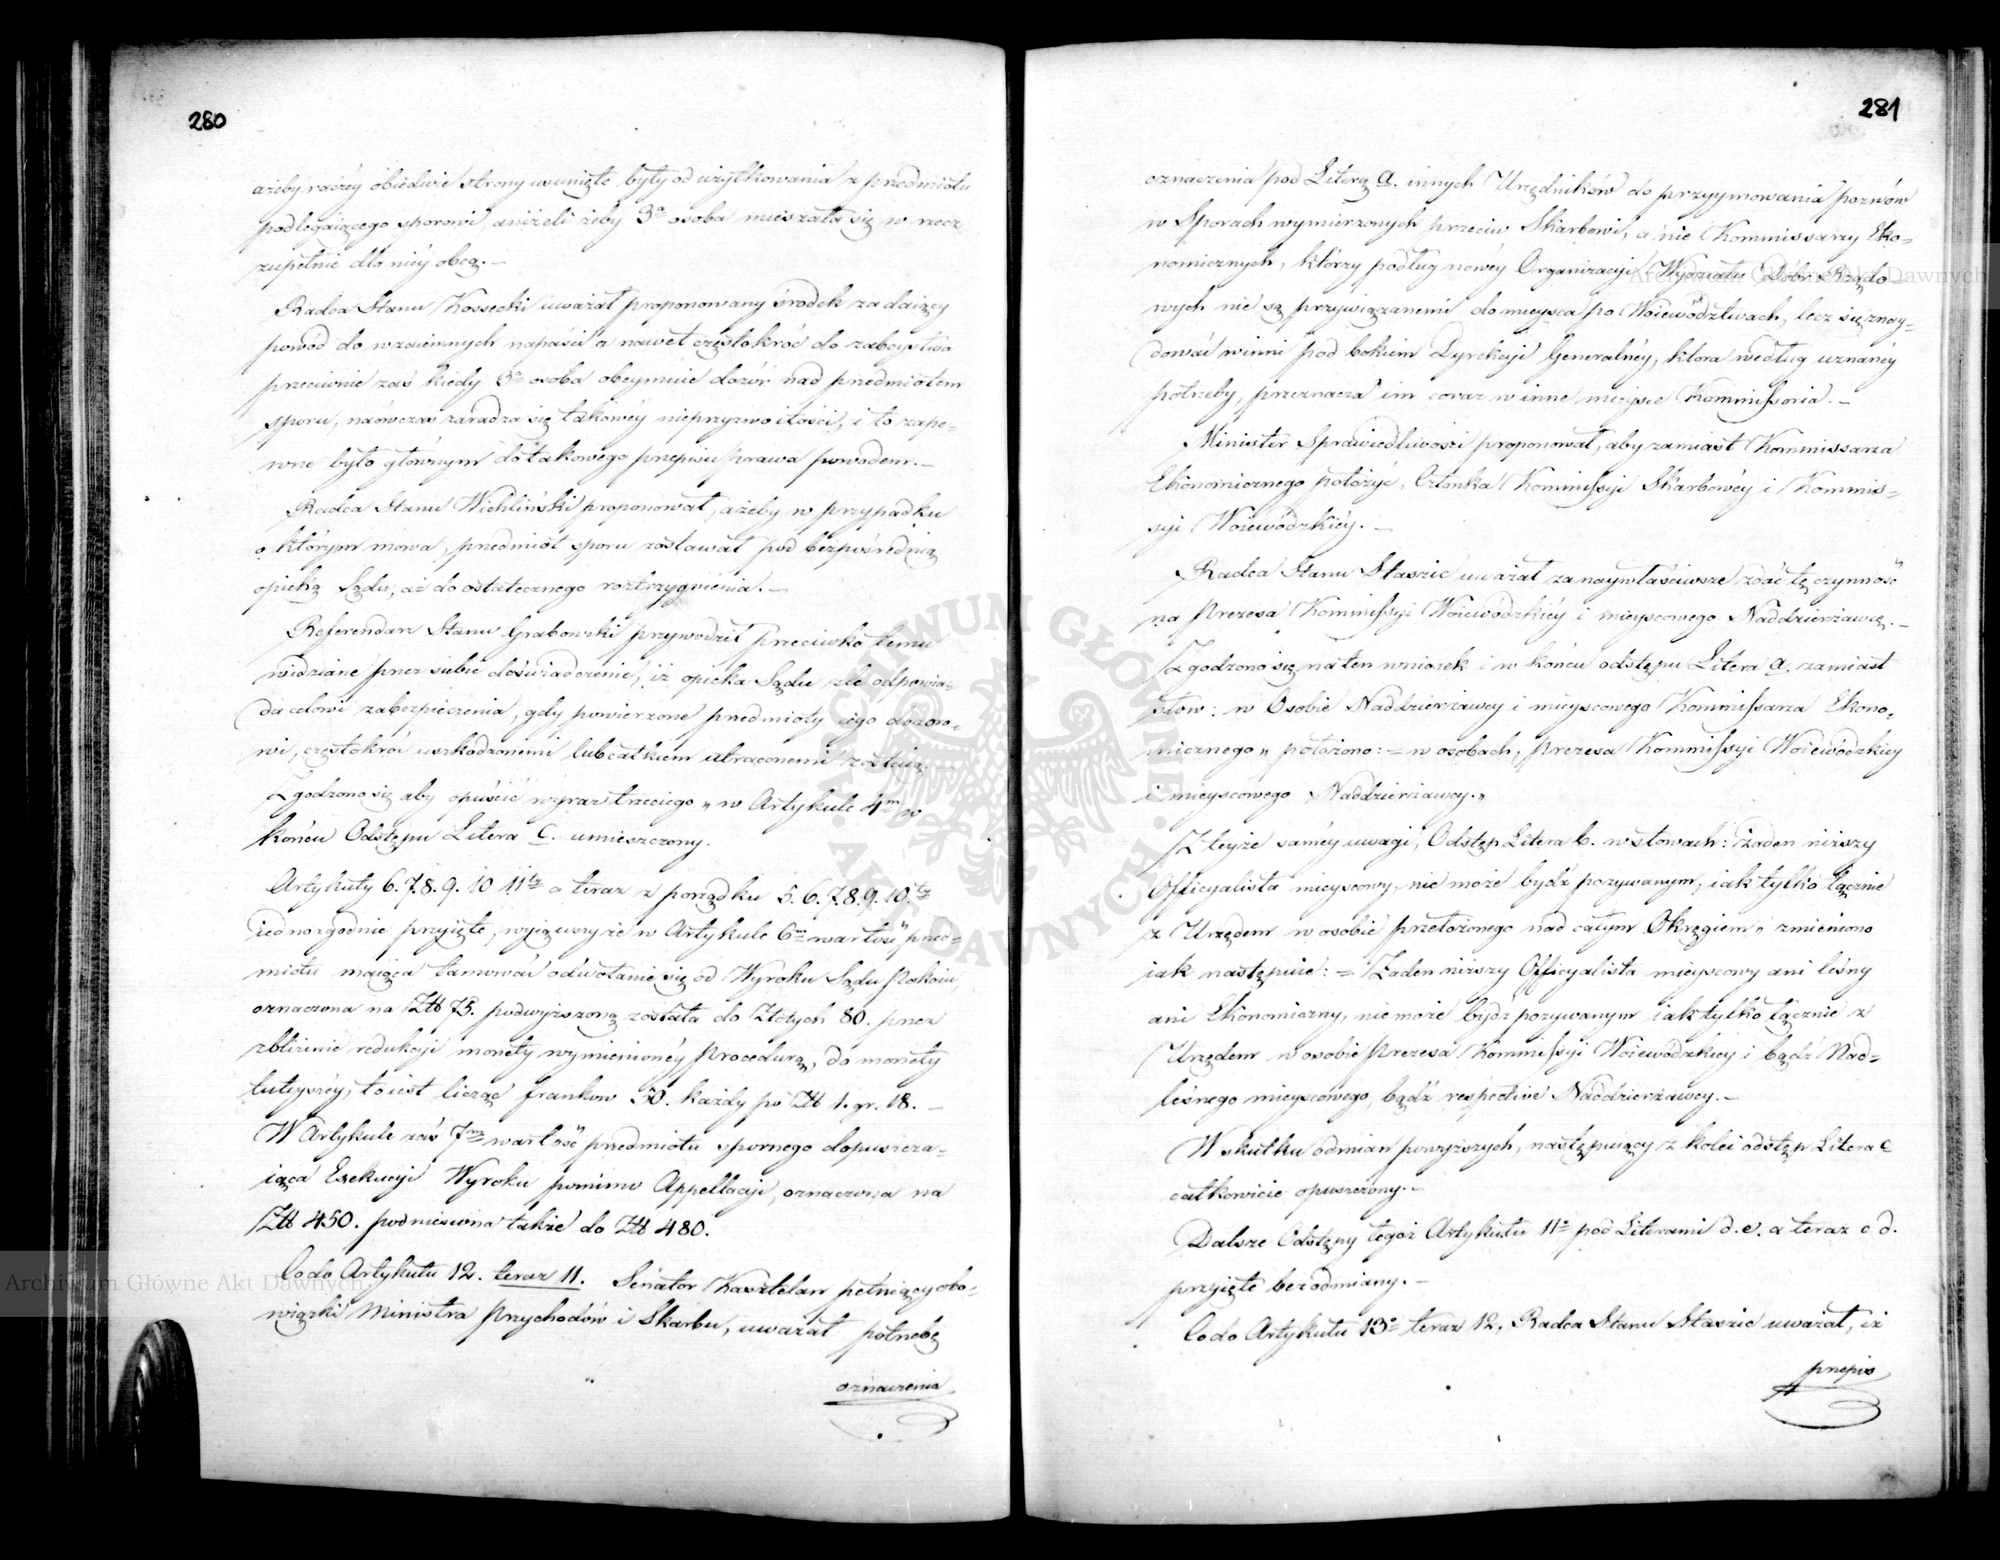 280
ażeby raczéy obiedwie strony usunięte były od użytkowania z przedmiotu
podlegaiącego sporowi, aniżeli żeby 3a osoba mieszała się w rzecz
zupełnie dla niéy obcą. —
Radca Stanu Kossecki uważał proponowany środek za daiący
powód do wzaiemnych napaści a nawet częstokróć do zaboystwa
przeciwnie zaś kiedy 3a osoba obeymuie dozór nad przedmiotem
sporu, naówczas zaradza się takowéy nieprzyzwoitości, i to zape=
wne było głównym do takowego przepisu prawa powodem. —
Radca Stanu Wichliński proponował, ażeby w przypadku
o którym mowa, przedmiot sporu zostawał pod bezpośrednią
opieką Sądu, aż do ostatecznego roztrzygnienia. —
Referendarz Stanu Grabowski przywodził przeciwko temu
widziane przez siebie doświadczenie, iż opieka Sądu źle odpowia=
da celowi zabezpieczenia, gdy powierzone przedmioty iego dozoro=
wi, częstokróć uszkodzonemi lub całkiem utraconemi zostaią.
Zgodzono się aby opuścić wyraz trzeciego „ w Artykule 4m w
końcu Odstępu Litera C. umieszczony.
Artykuły 6. 7. 8. 9. 10 11ty a teraz z porządku 5. 6. 7. 8. 9. 10.ty
iednozgodnie przyięte, wyiąwszy że w Artykule 6m wartość przed=
miotu maiąca tamować odwołanie się od Wyroku Sądu Pokoiu,
oznaczona na Ztt 75. podwyższoną została do Złotych 80. przez
zbliżenie redukcyi monety wymienionéy Procedurą, do monety
tuteyszéy, to iest licząc franków 50. każdy po Ztt 1. gr. 18. —
W Artykule zaś 7m wartość przedmiotu spornego dopuszcza=
iąca Exekucyi Wyroku pomimo Appellacyi, oznaczona na
Ztt 450. podniesiona także do Ztt 480.
Co do Artykułu 12. teraz 11. Senator Kasztelan pełniący obo=
wiązki Ministra Przychodów i Skarbu, uważał potrzebę
oznaczenia
281
oznaczenia pod Literą a. innych Urzędników do przyymowania pozwów
w Sporach wymierzonych przeciw Skarbowi, a nie Kommissarzy Eko=
nomicznych, którzy podług nowéy Organizacyi Wydziału Dóbr Rządo=
wych nie są przywiązanemi do mieysca po Woiewództwach, lecz się znay=
dować winni pod bokiem Dyrekcyi Generalnéy, która według uznanéy
potrzeby, przeznacza im coraz w inne mieysce Kommissoria. —
Minister Sprawiedliwości proponował, aby zamiast Kommissarza
Ekonomicznego położyć, Członka Kommissyi Skarbowéy i Kommis=
syi Woiewódzkiéy. —
Radca Stanu Staszic uważał za naywłaściwsze zdać tę czynność
na Prezesa Kommissyi Woiewódzkiéy i mieyscowego Naddzierżawcę. —
Zgodzono się na ten wniosek i w końcu odstępu Litera a. zamiast
słów: w Osobie Naddzierżawcy i mieyscowego Kommissarza Ekono=
micznego „ położono: = w osobach, Prezesa Kommissyi Woiewódzkiey
i mieyscowego Naddzierżawcy. „
Z teyże saméy uwagi, Odstęp Litera b. w słowach: żaden niższy
Officyalista mieyscowy, nie może bydź pozywanym, iak tylko łącznie
z Urzędem w osobie przełożonego nad całym Okręgiem „ zmieniono
iak następuie: = Żaden niższy Officyalista mieyscowy ani leśny
ani Ekonomiczny, nie może bydź pozywanym iak tylko łącznie z
Urzędem w osobie Prezesa Kommissyi Woiewódzkiey i bądź Nad=
leśnego mieyscowego, bądź respective Naddzierżawcy. —
W skutku odmian powyższych, następuiący z kolei odstęp Litera c
całkowicie opuszczony. —
Dalsze Odstępy tegoż Artykułu 11o pod Literami d. e. a teraz c d.
przyięte bez odmiany. —
Co do Artykułu 13o teraz 12. Radca Stanu Staszic uważał, iż
przepis
Archiwum Główne Akt Dawnych
Archiwum Główne Akt Dawnych
ARCHIWUM GŁÓWNE AKT DAWNYCH